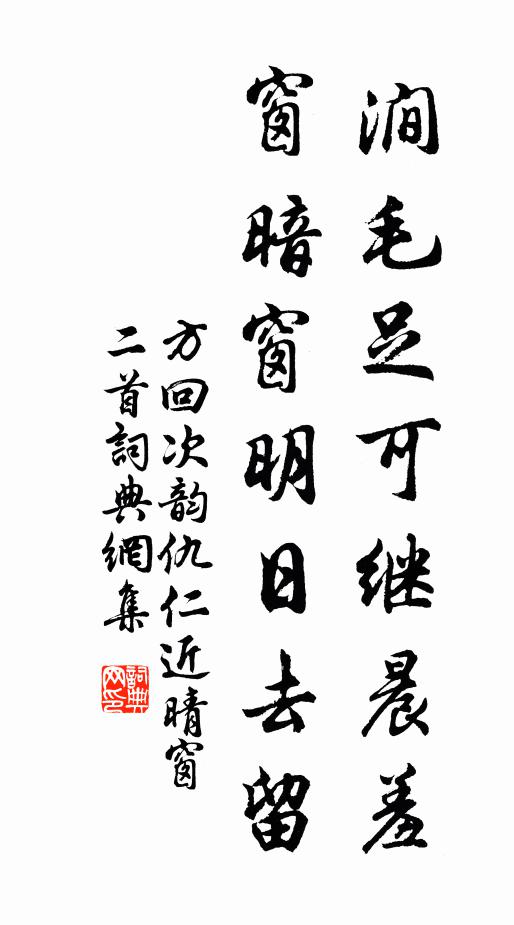 澗毛足可继晨羞
窗暗窗明日去留
方回次韵仇仁近晴窗
二首詞典網集
詞典
网印